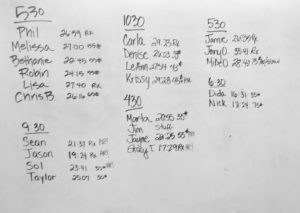 530
Phil 26:59 Rx
Melissa 27:00 55#
Bethanie 22:45 55#
Robin 24:15 55#
Lisa 27:40 Rx
Chris B. 26:16
9:30
Sean 21:37 Rx
Jason 19:24 Rx
Sol 23:41 55#
Taylor 25:07 50#
1030
Carla 29:23 Rx
Denise 20:03
LeAnn 27:54 45#
Krissy 29:28
430
Marta 20:55 55#
Jim Staff
Jayme 28:25 55#
Stacy T. 17:29 Rx
530
Jamie 26:35 Rx
Jerry D. 35:41 Rx
Mike O. 28:40
6:30
Dida 16:31 55#
Nick 18:24 75#